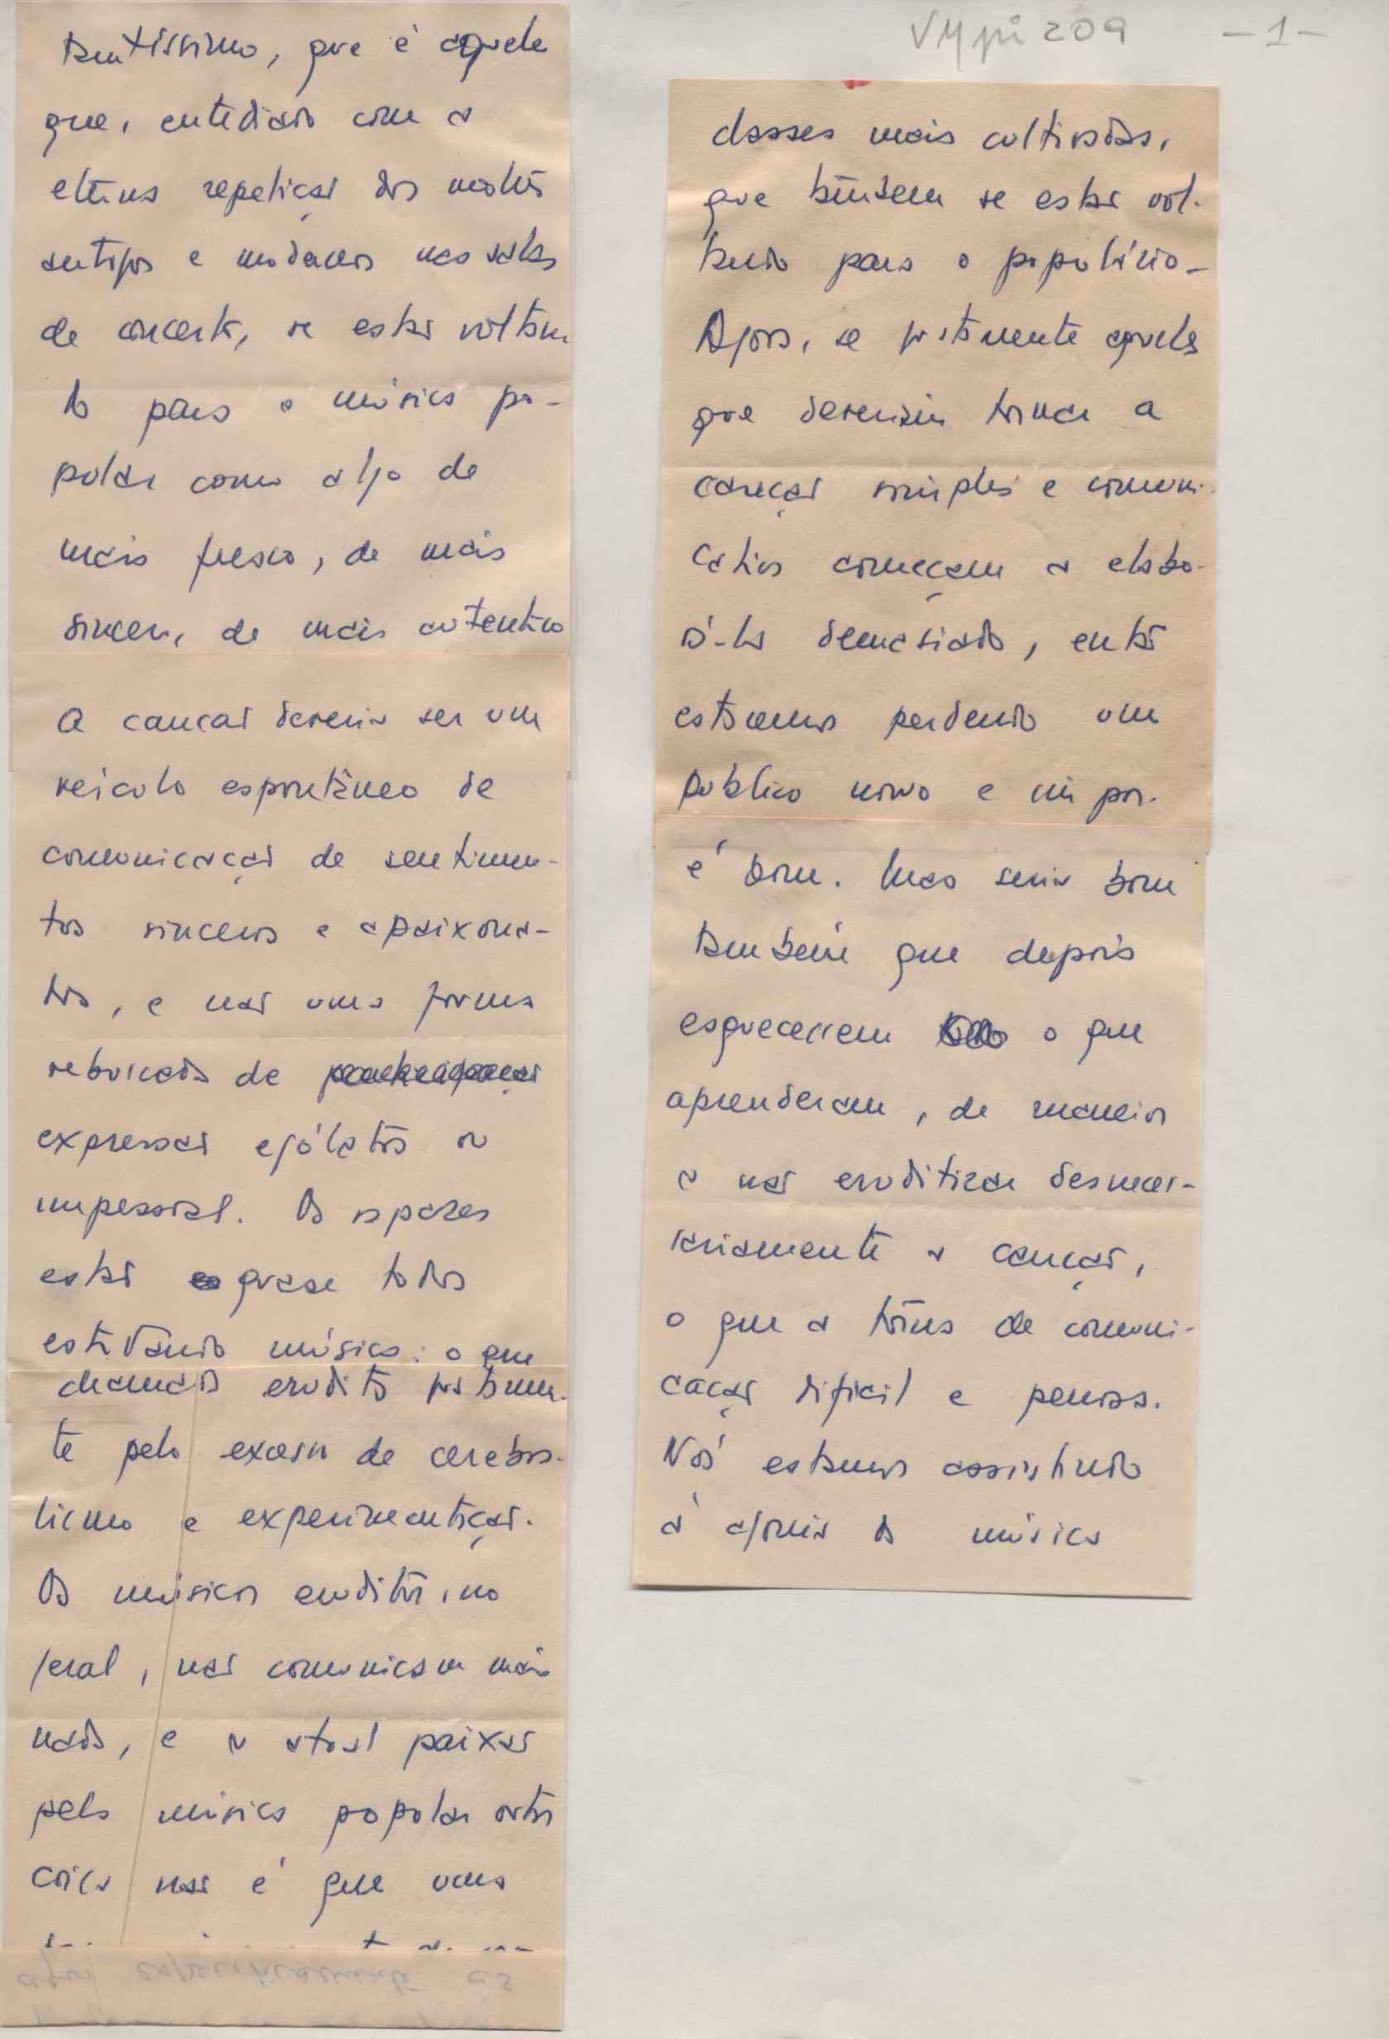 VMpi 209 -1-
tantíssimo, que é aquele
que, entediado com a
eterna repetição dos mestres
antigos e modernos nas salas
de concerto, se está voltan
do para a música po-
pular como algo de
mais fresco, de mais
sincero, de mais autentico
A canção deveria ser um
veículo espontâneo de
comunicação de sentimen-
tos sinceros e apaixona-
dos, e não uma forma
rebuscada de
expressão ególatra ou
impessoal. Os rapazes
estão quase todos
estudando música: o que
chamada erudita justamen-
te pelo excesso de cerebra-
lismo e experimentação.
Os músicos eruditos, no
geral, não comunicam mais
nada, e a atual paixão
pela música popular outra
coisa não é que uma
aqui especificamente as
classes mais cultivadas,
que também se está vol-
tando para o populário -
Agora, se justamente aqueles
que deveriam tornar a
canção simples e comuni-
cativa começam a elabo-
rá-la demasiado, então
estaremos perdendo um
publico novo e impor-
é bom. Mas seria bom
também que depois
esquecessem o que
aprenderam, de maneira
a não eruditizar desneces-
sariamente a canção,
o que a torna de comuni-
cação dificil e penosa.
Nós estamos assistindo
à agonia da música